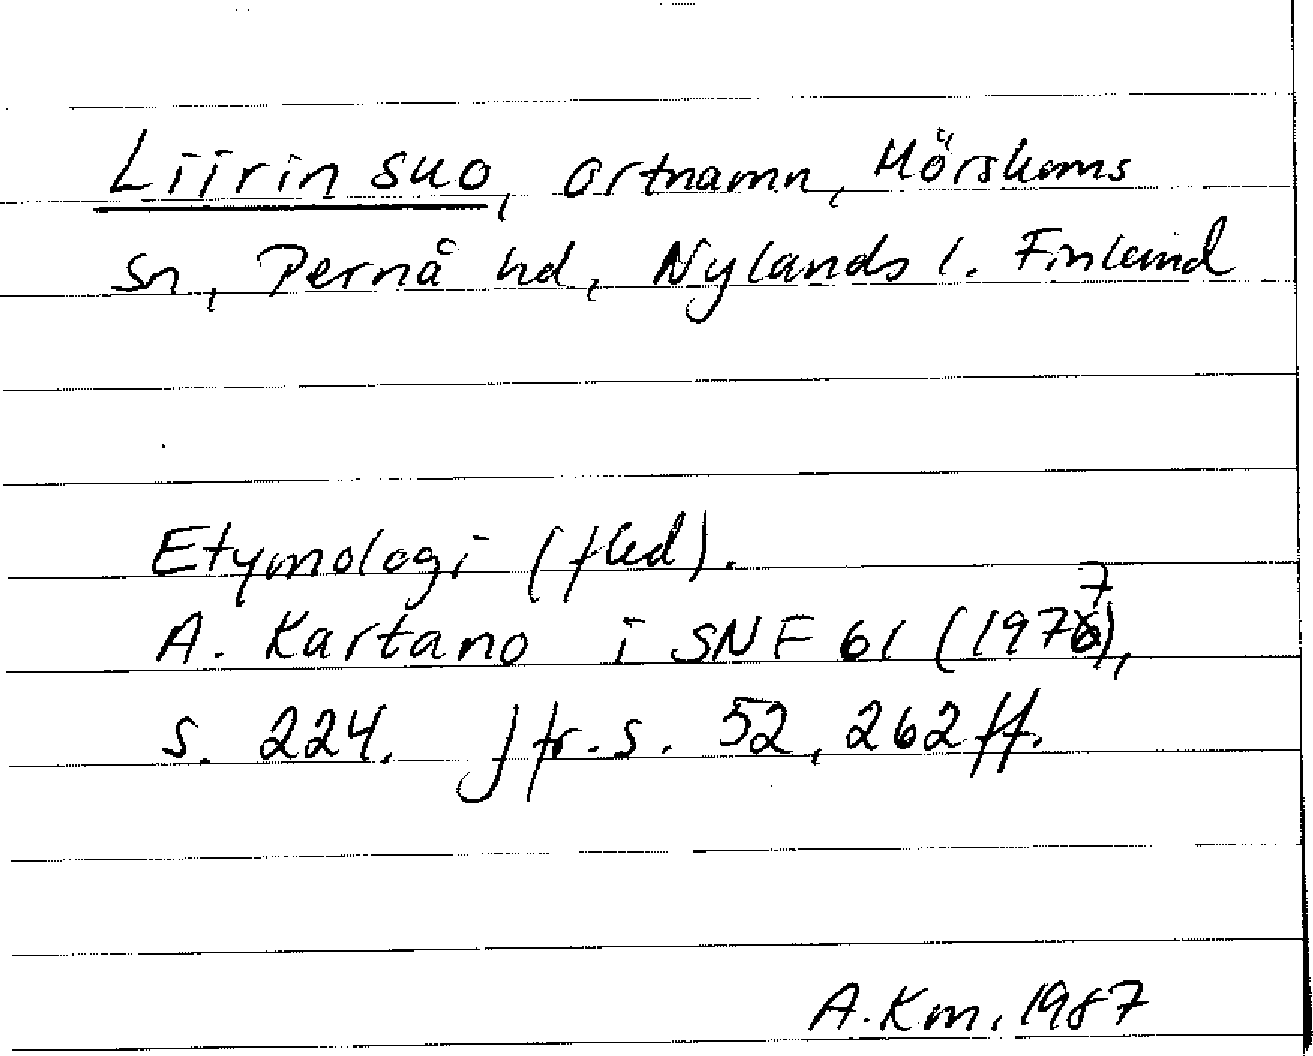 Liirin suo, ortnamn, Mörskoms
sn, Pernå hd, Nylands l. Finland
Etymologi (fled).
A. Kartano i SNF 61 (1977),
s. 224. Jfr. s. 52, 262 ff.
A.Km. 1987